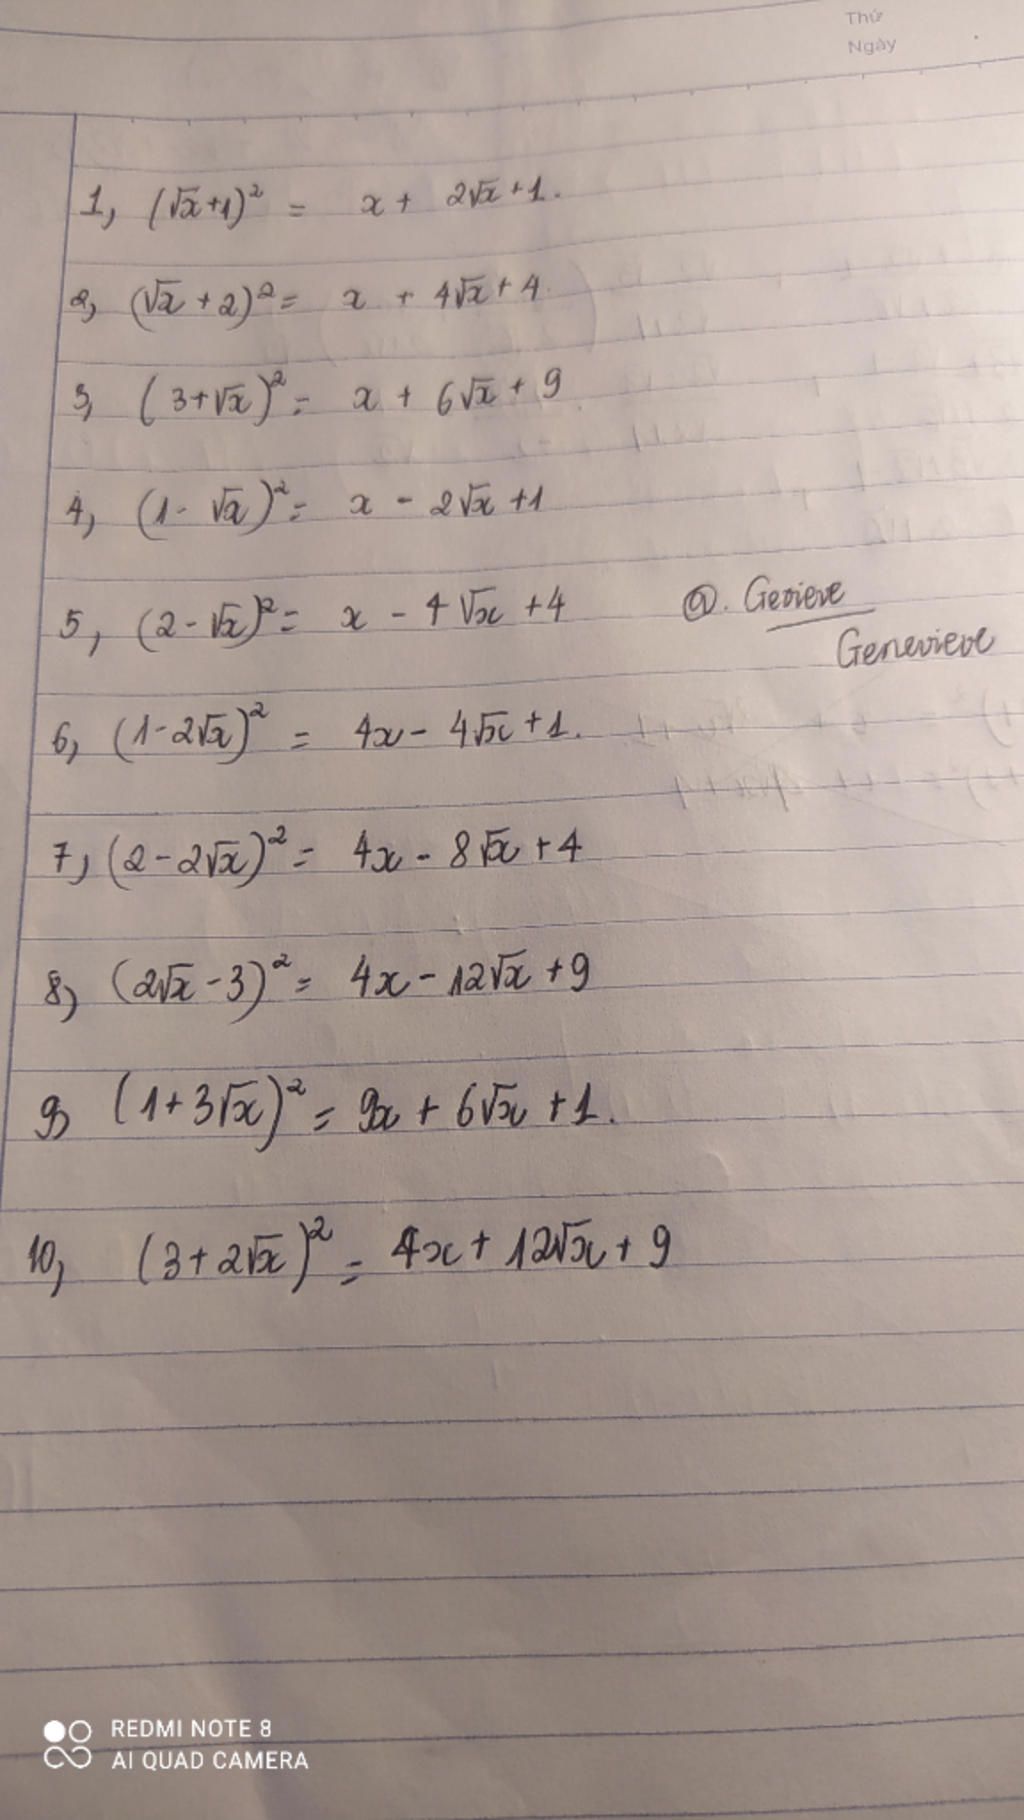 Thứ
Ngày
1, (√x+1)² = x + 2√x+1.
2, (√x + 2)² = x + 4√x + 4.
3, (3+√x)² = x + 6√x + 9
4, (1- √x)² = x - 2√x +1
5, (2-√x)² = x - 4√x +4
@. Gevieve
Genevieve
6, (1-2√x)² = 4x - 4√x +1.
7, (2-2√x)² = 4x - 8√x + 4
8, (2√x-3)² = 4x - 12√x +9
9, (1+3√x)² = 9x + 6√x +1.
10, (3+2√x)² = 4x + 12√x + 9
REDMI NOTE 8
AI QUAD CAMERA